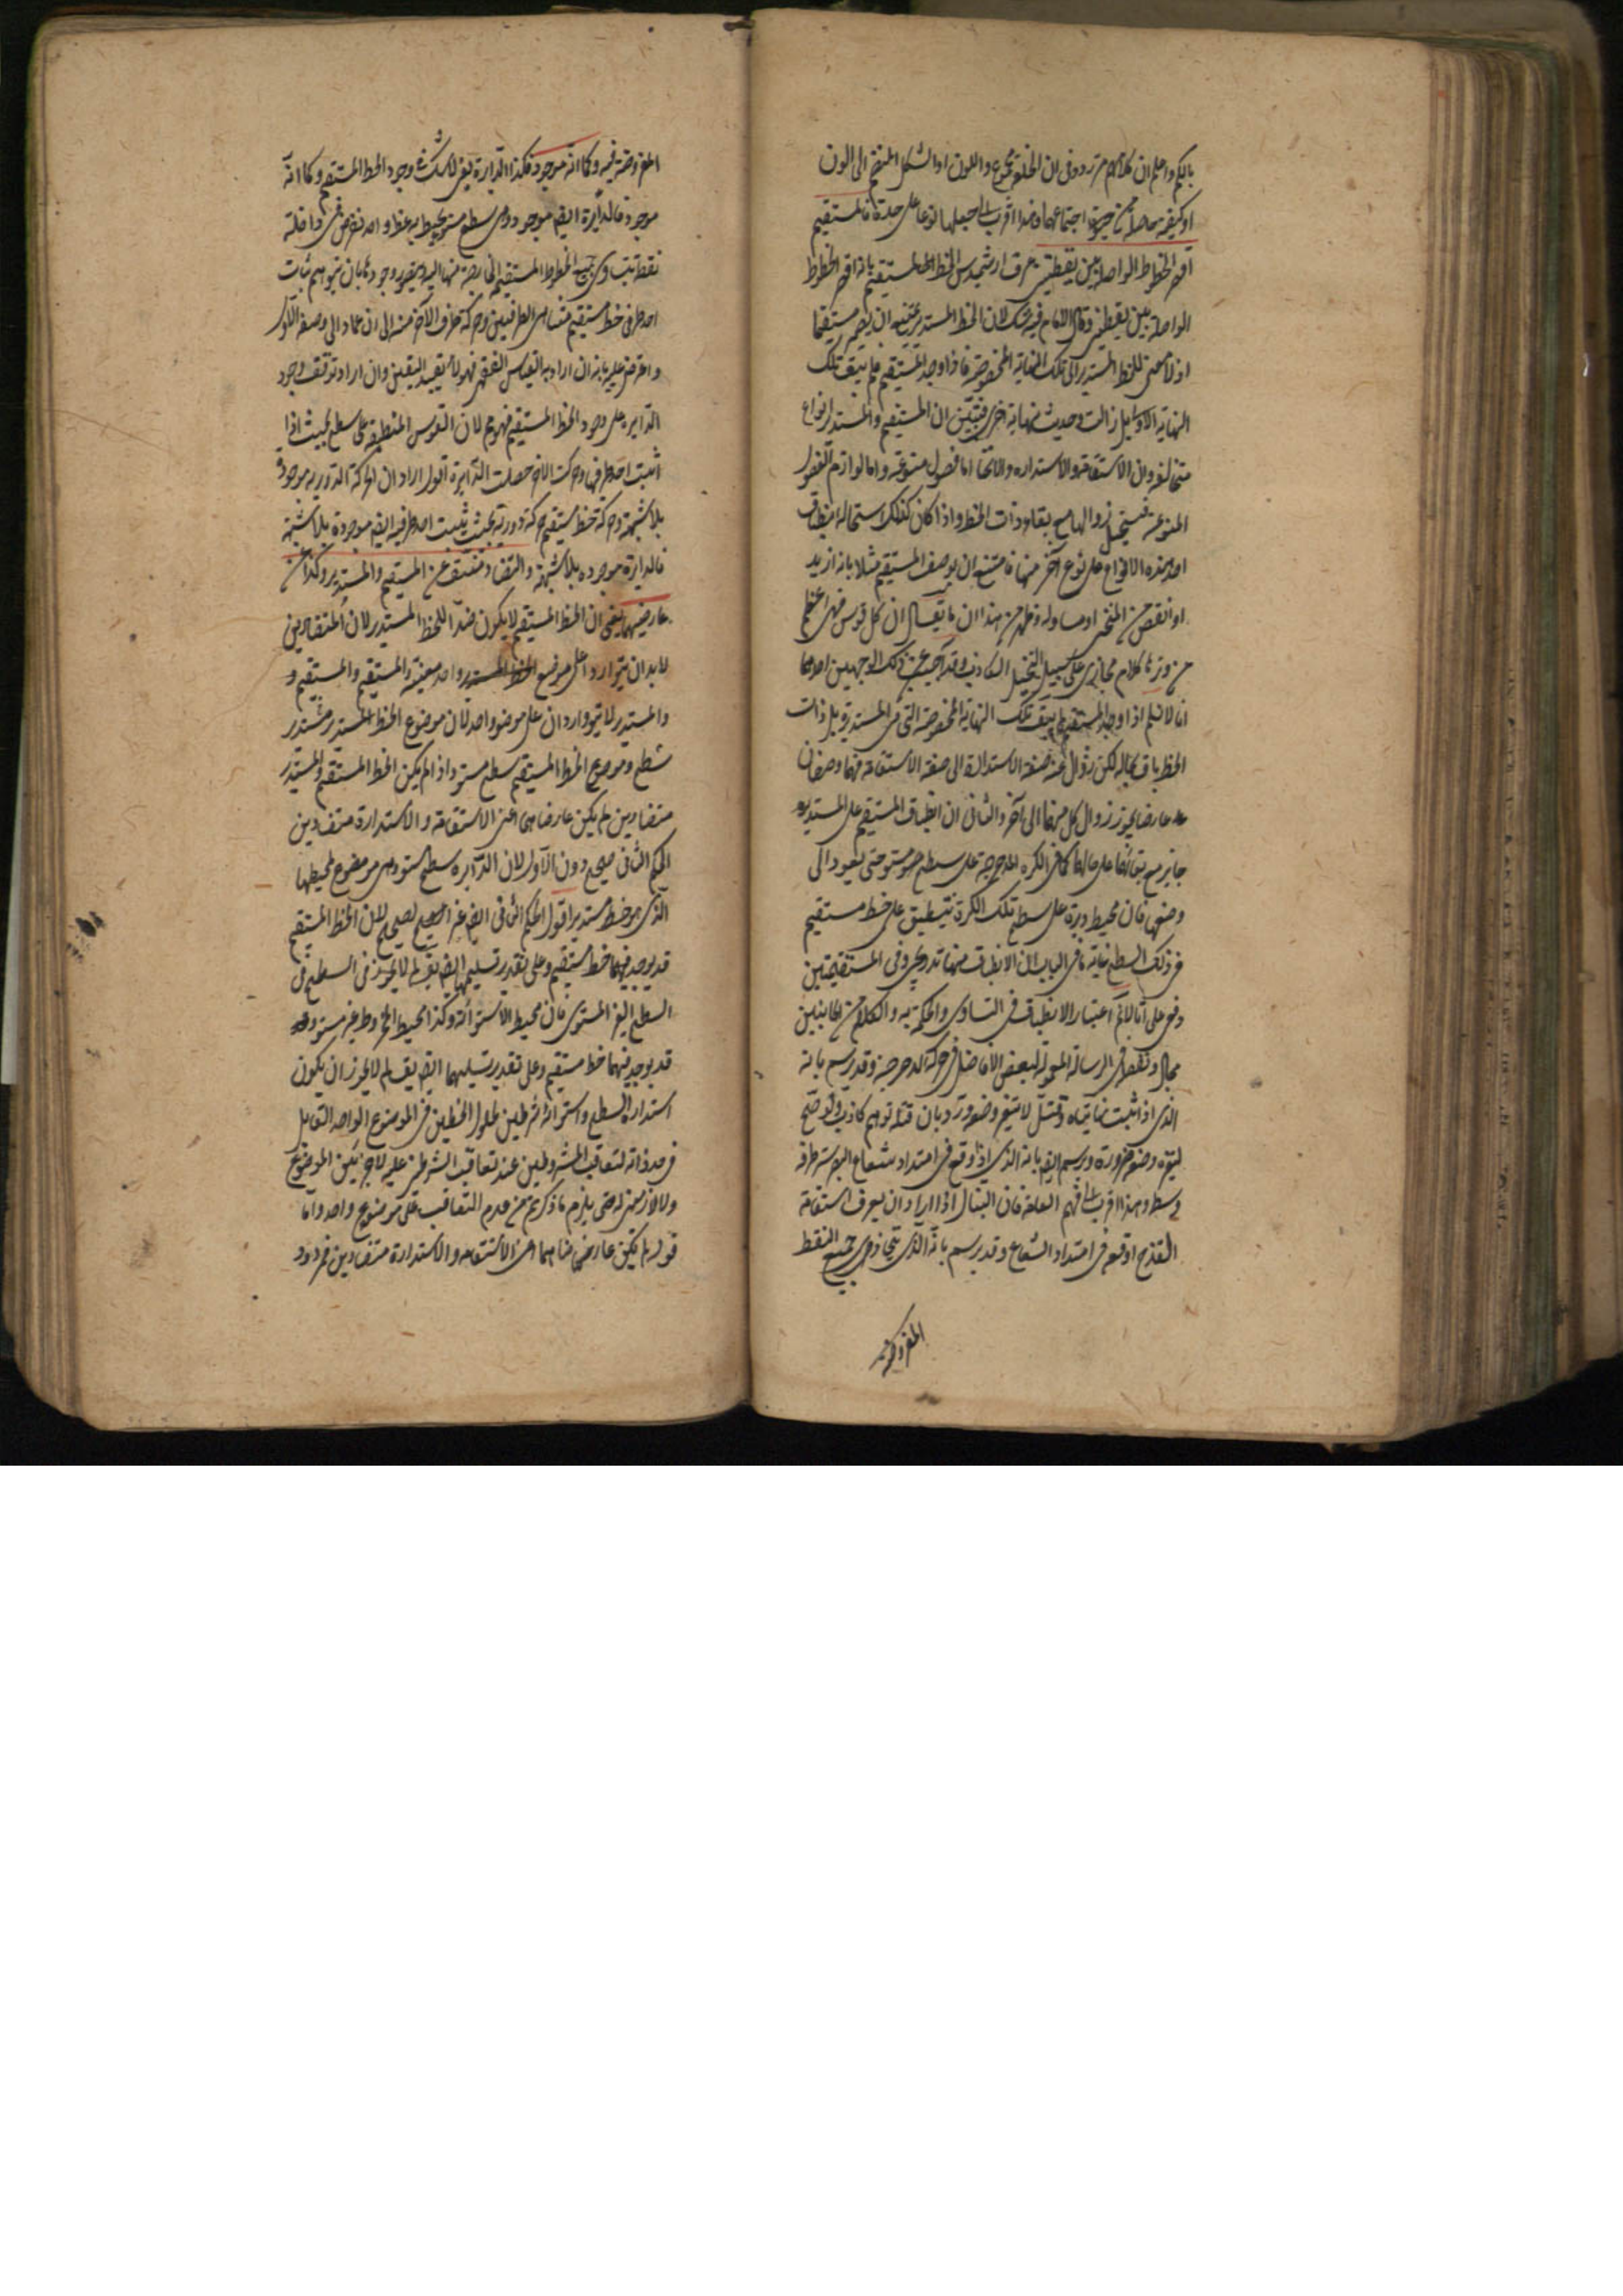 بالكم واعلم ان كلامهم متردد فى ان الخلقة مجموع واللون او الشكل المنضم الى اللون
او كيفية حاصلة من حيث اجتماعهما وهذا اقرب الى جعلها نوعا على حدة فالمستقيم
اقصر الخطوط الواصلة بين نقطتين عرف ارشميدس الخط المستقيم بانه اقصر الخطوط
الواصلة بين نقطتين وقال الامام فيه شك لان الخط المستدير يمتنع ان يصير مستقيما
اذ لا معنى للخط المستدير الا تلك النهاية المخصوصة فاذا وجد المستقيم لم يبق تلك
النهاية الاولى بل زالت وحدث نهاية اخرى فتبين ان المستقيم والمستدير انواع
متخالفة وان الاستقامة والاستدارة والانحناء اما فصول منوعة واما لوازم الفصول
المنوعة فيستحيل زوالها مع بقاء ذات الخط واذا كان كذلك استحالة انطباق
احد هذه الانواع على نوع آخر منها فامتنع ان يوصف المستقيم مثلا بانه ازيد
او انقص من المنحنى او مساو له وظهر من هذا ان ما يقال ان كل قوس فهى اعظم
من وترها كلام مجازى على سبيل التخيل الكاذب وقد اجيب عن ذلك بوجهين احدهما
انا لا نسلم اذا وجد المستقيم لم يبق تلك النهاية المخصوصة التى هى المستديرة بل ذات
الخط باق بحاله لكن زوال عنه صفة الاستدارة الى صفة الاستقامة فهما وصفان
عارضان يجوز زوال كل منهما الى آخر والثانى ان انطباق المستقيم على المستدير
جايز مع بقائهما على حالهما كما فى الكرة المدحرجة على سطح مستو حتى يعود الى
وضعها فان محيط دايرة على سطح تلك الكرة ينطبق على خط مستقيم
فى ذلك السطح غاية ما فى الباب ان الانطباق منها تدريجى وفى المستقيمين
دفعى على انا لا نم اعتبار الانطباق فى التساوى والحكم به والكلام من الجانبين
مجال وتفصيل فى الرسالة المعمولة لبعض الافاضل فى حركة الدحرجة وقد يرسم بانه
الذى اذا ثبت نهايتاه وقتل لا يتغير وضعه ورد بان قتله توهم كاذب ولو صح
لتغير وضعه ضرورة ويرسم ايضا بانه الذى اذا وقع فى امتداد شعاع البصر ستر طرفه
وسطه وهذا اقرب الى فهم العامة فان النبال اذا اراد ان يعرف استقامة
القدح اوقعه فى امتداد الشعاع وقد يرسم بانه الذى يتحاذى جميع النقط
المفروضة
المفروضة فيه وكما انه موجود فكذا الدايرة يعنى لا شك فى وجود الخط المستقيم وكما انه
موجود فالدايرة ايضا موجودة وهى سطح مستو يحيط به خط واحد يفرض فى داخله
نقطة يتساوى جميع الخطوط المستقيمة الخارجة منها اليه وتصور وجودها بان يتوهم ثبات
احد طرفى خط مستقيم متناهى الطرفين وحركة طرف الآخر منه الى ان عاد الى وضعه الاول
واعترض عليه بانه ان اراد به القياس الفقهى فهو لا يفيد اليقين وان اراد توقف وجود
الدايرة على وجود الخط المستقيم فهو مم لان القوس المنطبقة على سطح بحيث اذا
اثبت احد طرفيها وحركت الآخر حصلت الدايرة اقول اراد ان الحركة الدورية موجودة
بلا شبهة وحركة خط مستقيم حركة دورية بحيث يثبت احد طرفيه ايضا موجودة بلا شبهة
فالدايرة موجودة بلا شبهة والتضاد منتف عن المستقيم والمستدير وكذا عن
عارضيهما يعنى ان الخط المستقيم لا يكون ضدا للخط المستدير لان المتضادين
لا بد ان يتواردا على موضع واحد بعينه والمستقيم والمستقيم و
والمستدير لا يتواردان على موضوع واحد لان موضوع الخط المستدير مستدير
سطح وموضوع الخط المستقيم سطح مستو واذا لم يكن الخط المستقيم والمستدير
متضادين لم يكن عارضاهما اعنى الاستقامة والاستدارة متضادين
الحكم الثانى صحيح دون الاول لان الدايرة سطح مستو وهى موضوع لمحيطها
الذى هو خط مستدير اقول الحكم الثانى ايضا غير صحيح لان الخط المستقيم
قد يوجد فيهما خط مستقيم وعلى تقدير تسليمهما ايضا يق لم لا يجوز فى السطح فى
السطح الغير المستوى فان محيط الاستوانة وكذا محيط المخروط غير مستو وقد
قد يوجد فيهما خط مستقيم وعلى تقدير تسليمهما ايضا يق لم لا يجوز ان يكون
استدارة السطح واستوائه شرطين لحلول الخطين فى الموضوع الواحد القابل
فى حد ذاته لتعاقب المشروطين عند تعاقب الشرطين عليه لا جزئين الموضوع
ولا لازمين له حتى يلزم ما ذكرتم من عدم التعاقب على موضوع واحد واما
قوله لم يكن عارضاهما اعنى الاستقامة والاستدارة متضادين فمردود